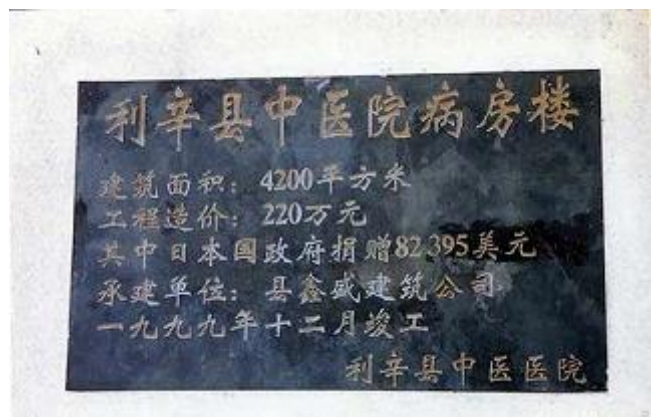 利辛县中医院病房楼
建筑面积：4200平方米
工程造价：220万元
其中日本国政府捐赠82395美元
承建单位：县鑫盛建筑公司
一九九九年十二月竣工
利辛县中医医院